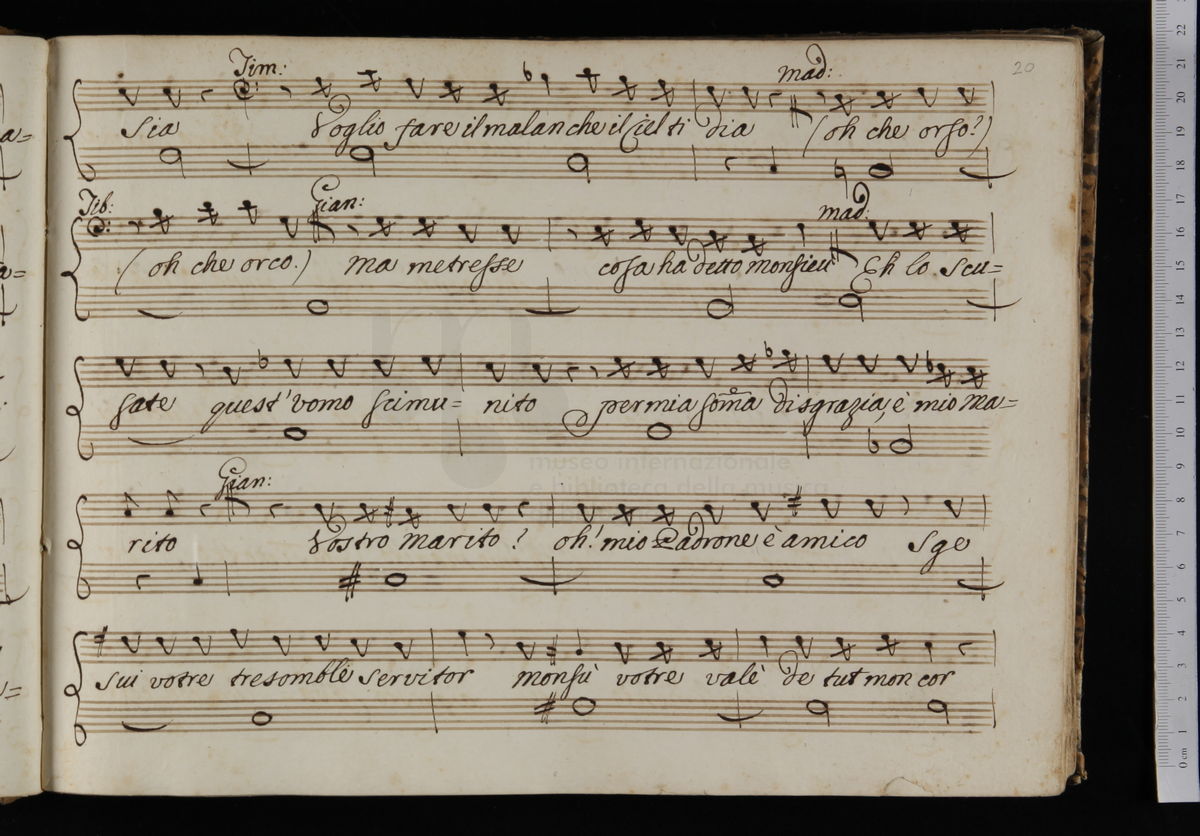 20
Tim: mad:
Sia Voglio fare il malan che il Ciel ti dia (oh che orso?)
Tib: Gian: mad:
(oh che orco.) Ma metresse cosa ha detto monsieu Eh lo scu=
sate quest'vomo scimu= nito per mia soma disgrazia, è mio Ma=
Gian:
rito Vostro Marito? oh! mio Padrone è amico Sge
sui votre tresomblè servitor monsù votre valè de tut mon cor
museo internazionale
e biblioteca della musica